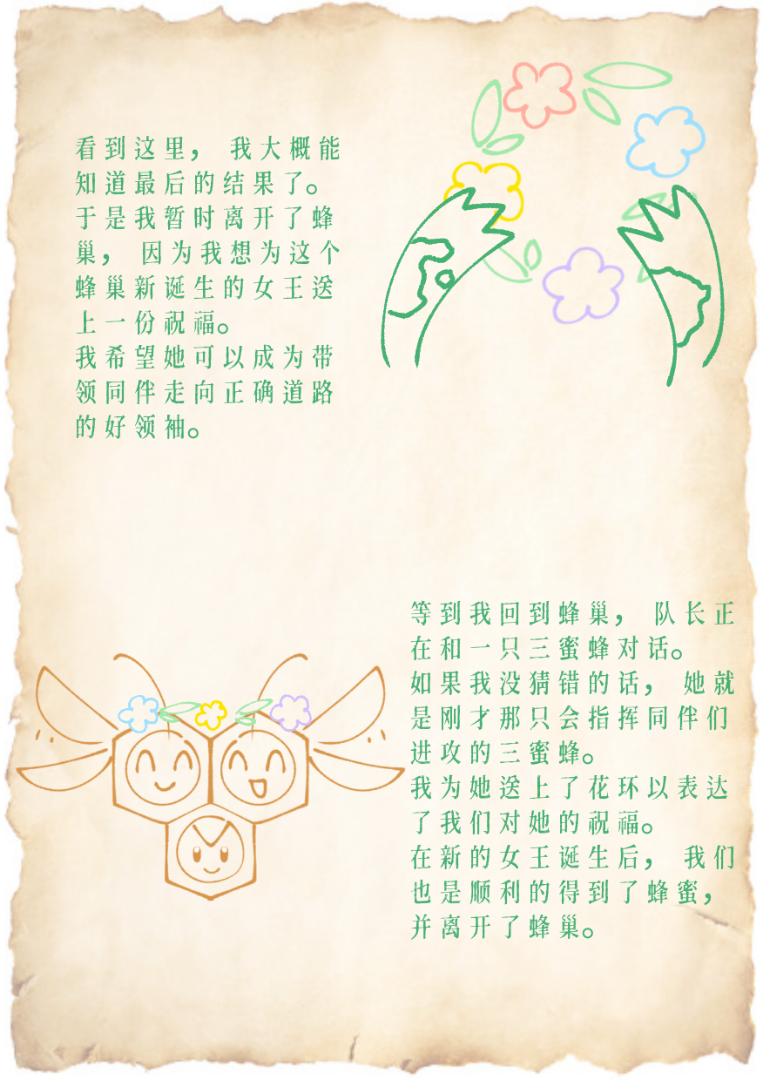 看到这里，我大概能
知道最后的结果了。
于是我暂时离开了蜂
巢，因为我想为这个
蜂巢新诞生的女王送
上一份祝福。
我希望她可以成为带
领同伴走向正确道路
的好领袖。
等到我回到蜂巢，队长正
在和一只三蜜蜂对话。
如果我没猜错的话，她就
是刚才那只会指挥同伴们
进攻的三蜜蜂。
我为她送上了花环以表达
了我们对她的祝福。
在新的女王诞生后，我们
也是顺利的得到了蜂蜜，
并离开了蜂巢。